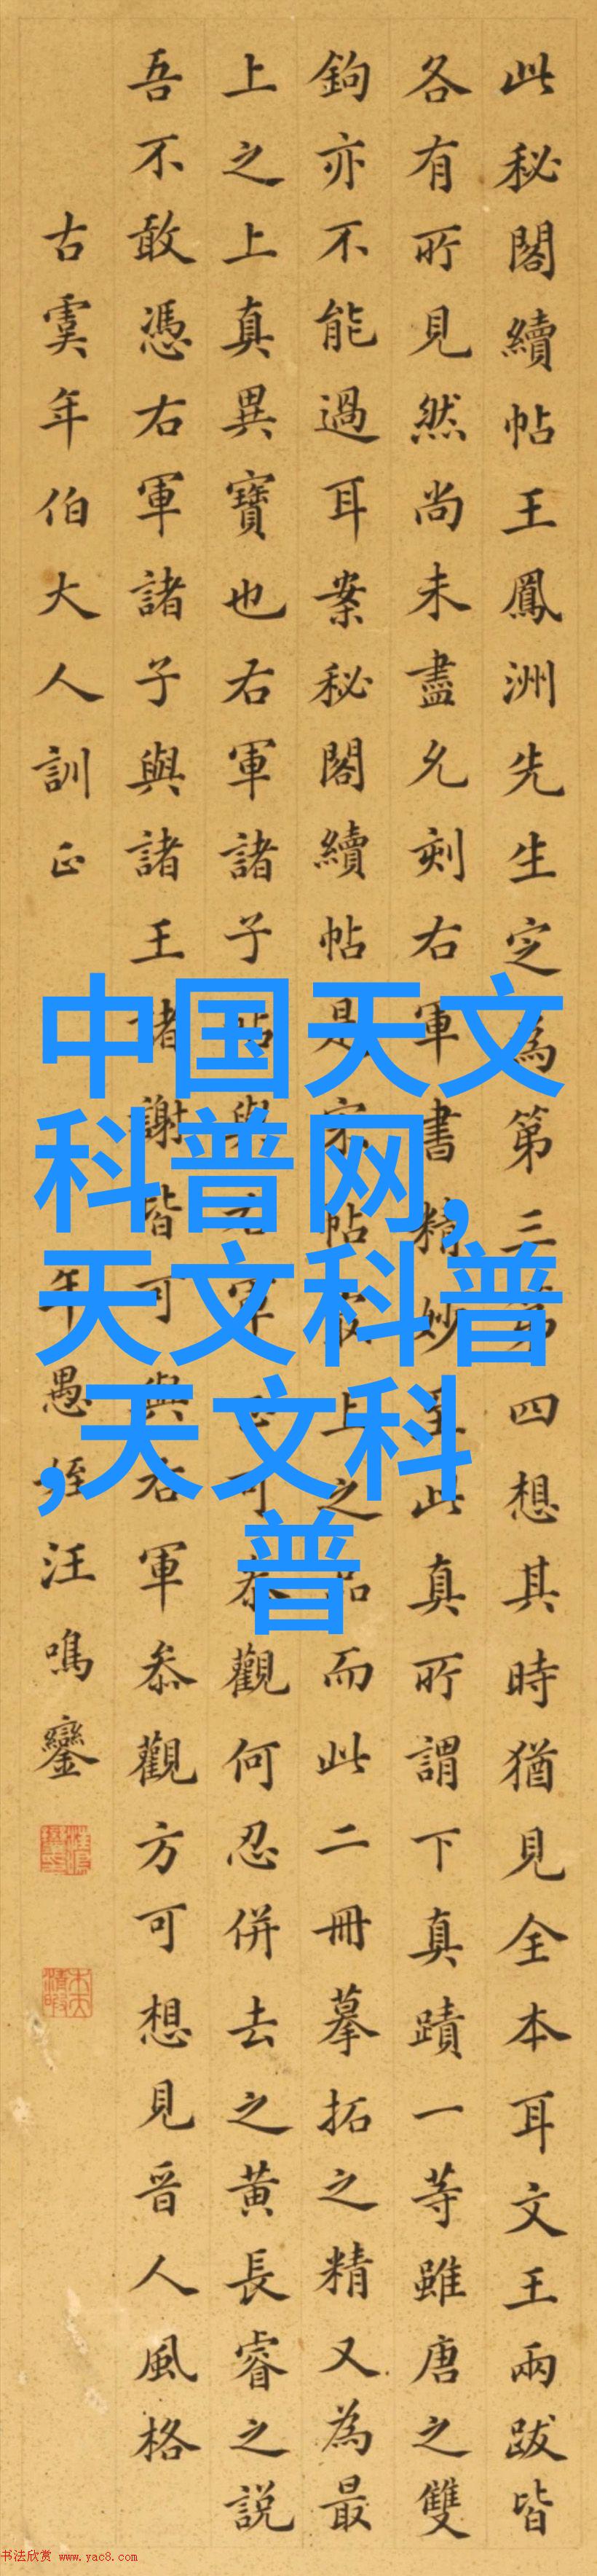 此秘閣續帖王鳳洲先生定為第三第四想其時猶見全本耳文王兩跋皆
各有所見然尚未盡允刻右軍書精妙至此真所謂下真蹟一等雖唐之雙
鉤亦不能過耳案秘閣續帖是宋帖上之品而此二冊摹拓之精又為最
上之上真異寶也右軍諸子帖與右軍可叅觀何忍併去之黃長睿之説
吾不敢憑右軍諸子與諸王諸謝皆可與右軍叅觀方可想見晉人風格
古虞年伯大人訓正
年愚姪汪鳴鑾
中国天文
科普网,
天文科普
,天文科
普
书法欣赏 www.yac8.com